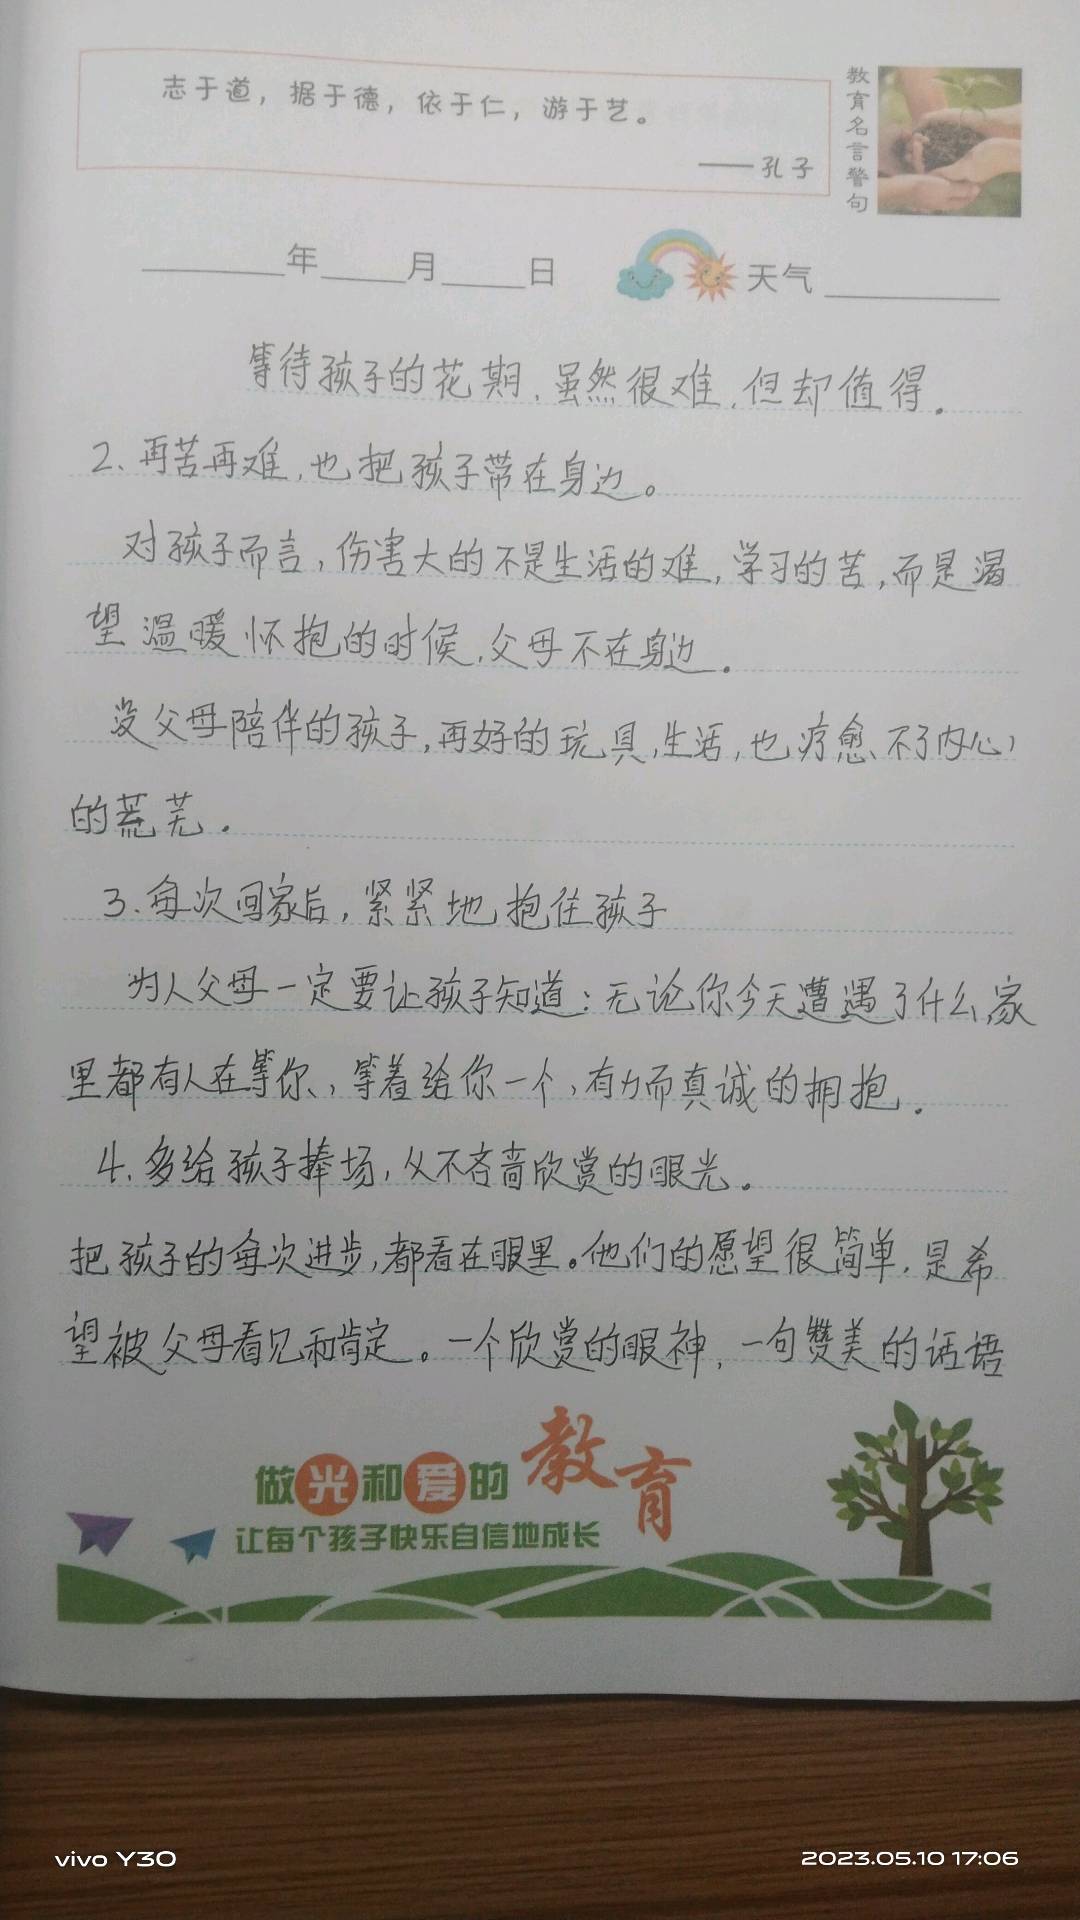 志于道，据于德，依于仁，游于艺。
——孔子
教育名言警句
____年____月____日 天气____
等待孩子的花期，虽然很难，但却值得。
2、再苦再难，也把孩子带在身边。
对孩子而言，伤害大的不是生活的难，学习的苦，而是渴
望温暖怀抱的时候，父母不在身边。
没父母陪伴的孩子，再好的玩具，生活，也疗愈不了内心
的荒芜。
3、每次回家后，紧紧地抱住孩子
为人父母一定要让孩子知道：无论你今天遭遇了什么，家
里都有人在等你，等着给你一个，有力而真诚的拥抱。
4、多给孩子捧场，从不吝啬欣赏的眼光。
把孩子的每次进步，都看在眼里。他们的愿望很简单，是希
望被父母看见和肯定。一个欣赏的眼神，一句赞美的话语
做光和爱的教育
让每个孩子快乐自信地成长
vivo Y30
2023.05.10 17:06